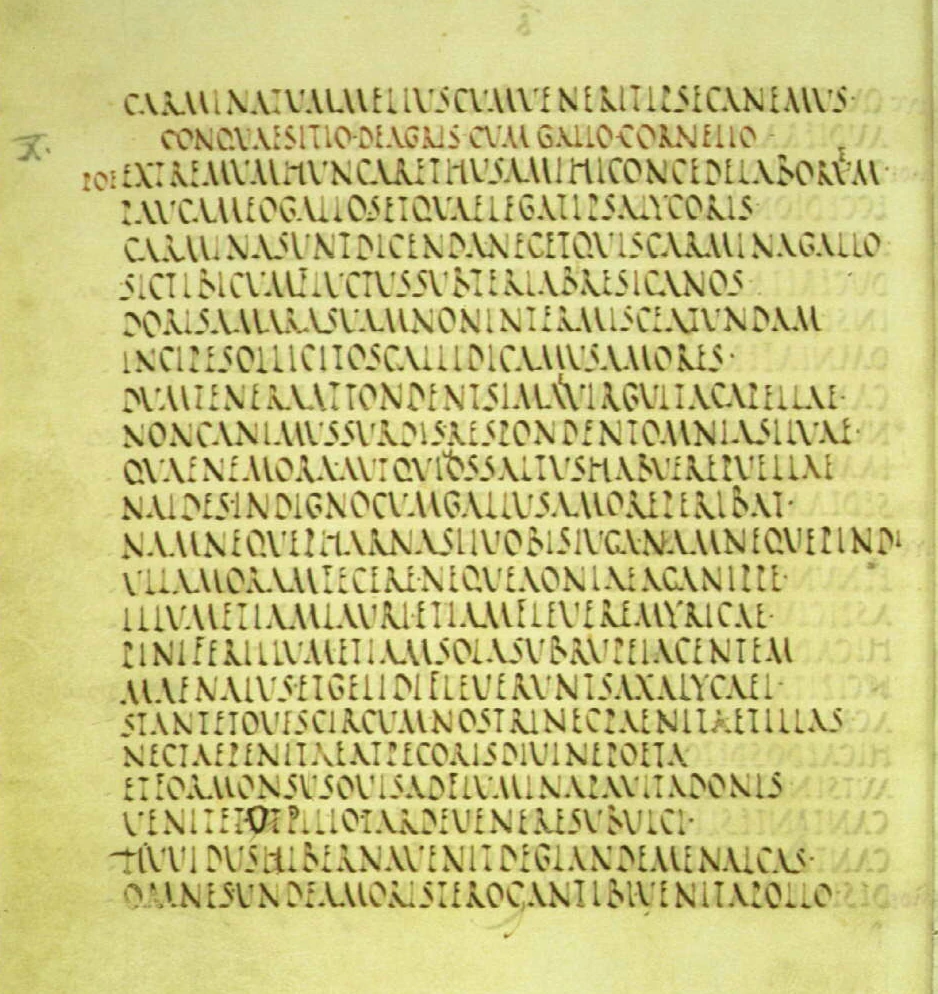 CARMINATVMMELIVSCVMVENERITIPSECANEMVS·
CONQVAESITIO·DEAGRIS·CVM GALLO·CORNELIO
X.
POE EXTREMVMHVNCARETHVSAMIHICONCEDELABOREM
PAVCAMEOGALLOSETQVAELEGATIPSALYCORIS
CARMINASVNTDICENDANEGETQVISCARMINAGALLO
SICTIBICVMFLVCTVSSVBTERLABRESICANOS
DORISAMARASVAMNONINTERMISCEATVNDAM
INCIPESOLLICITOSGALLIDICAMVSAMORES·
DVMTENERAATTONDENTSIMAEVIRGVLTACAPELLAE·
NONCANIMVSSVRDISRESPONDENTOMNIASILVAE·
QVAENEMORA·AVTQVIVOSSALTVSHABVEREPVELLAE
NAIDES·INDIGNOCVMGALLVSAMOREPERIBAT·
NAMNEQVEPHARNASIIVOBISIVGA·NAMNEQVEPINDI
VLLAMORAMFECERE·NEQVEAONIAEAGANIPPE·
ILLVMETIAMLAVRI·ETIAMFLEVEREMYRICAE·
PINIFERILLVMETIAMSOLASVBRVPEIACENTEM
MAENALVS·ETGELIDIFLEVERVNTSAXALYCAEI·
STANTETOVESCIRCVMNOSTRINECPAENITAETILLAS
NECTAEPENITAEATPECORISDIVINEPOETA
ETFORMONSVSOVISADFLVMINAPAVITADONIS
VENITETOTPILIOTARDEVENERESVBVLCI·
HVVIDVSHIBERNAVENITDEGLANDEMENALCAS·
OMNESVNDEAMORISTEROGANTTIBIVENITAPOLLO